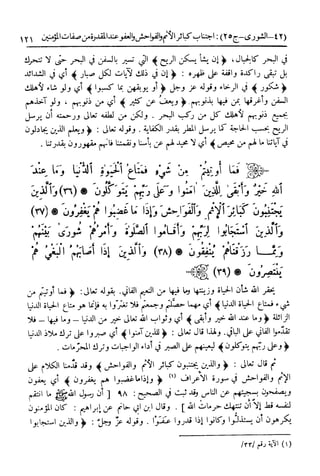 (٤٢-الشورى-ج٢٥): اجتناب كبائر الأثم والفواحش والعفو عند المقدرة من صفات المؤمنين ١٢١
في البحر كالجبال، ﴿ إن يشأ يسكن الريح ﴾ التي تسير بالسفن في البحر حتى لا تتحرك
بل تبقى راكدة واقفة على ظهره: ﴿ إن في ذلك لآيات لكل صبار ﴾ أي في الشدائد
﴿ شكور ﴾ في الرخاء وقوله عز وجل ﴿ أو يوبقهن بما كسبوا ﴾ أي ولو شاء لأهلك
السفن وأغرقها بمن فيها بذنوبهم ﴿ ويعف عن كثير ﴾ أي من ذنوبهم ، ولو آخذهم
بجميع ذنوبهم لأهلك كل من ركب البحر . ولكن من لطفه تعالى ورحمته أن يرسل
الريح بحسب الحاجة كما يرسل المطر بقدر الكفاية . وقوله تعالى : ﴿ ويعلم الذين يجادلون
في آياتنا ما لهم من محيص ﴾ أي لا محيد لهم عن بأسنا ونقمتنا فانهم مقهورون بقدرتنا .
﴿ فَمَا أُوتِيتُم مِّن شَيْءٍ فَمَتَاعُ الْحَيَاةِ الدُّنْيَا وَمَا عِندَ
اللهِ خَيْرٌ وَأَبْقَى لِلَّذِينَ آمَنُوا وَعَلَى رَبِّهِمْ يَتَوَكَّلُونَ * (٣٦) وَالَّذِينَ
يَجْتَنِبُونَ كَبَائِرَ الْإِثْمِ وَالْفَوَاحِشَ وَإِذَا مَا غَضِبُوا هُمْ يَغْفِرُونَ * (٣٧)
وَالَّذِينَ اسْتَجَابُوا لِرَبِّهِمْ وَأَقَامُوا الصَّلَاةَ وَأَمْرُهُمْ شُورَى بَيْنَهُمْ
وَمِمَّا رَزَقْنَاهُمْ يُنفِقُونَ * (٣٨) وَالَّذِينَ إِذَا أَصَابَهُمُ الْبَغْيُ هُمْ
يَنتَصِرُونَ * (٣٩) ﴾
يحقر الله شأن الحياة وزينتها وما فيها من النعيم الفاني. بقوله تعالى: ﴿ فما أوتيتم من
شيء فمتاع الحياة الدنيا ﴾ أي مهما حصلتم وجمعتم فلا تغتروا به فإنما هو متاع الحياة الدنيا
الزائلة ﴿ وما عند الله خير وأبقى ﴾ أي وثواب الله تعالى خير من الدنيا - وما فيها - فلا
تقدموا الفاني على الباقي. ولهذا قال تعالى : ﴿ للذين آمنوا ﴾ أي صبروا على ترك ملاذ الدنيا
﴿ وعلى ربهم يتوكلون ﴾ ليعينهم على الصبر في أداء الواجبات وترك المحرمات .
ثم قال تعالى : ﴿ والذين يجتنبون كبائر الأثم والفواحش ﴾ وقد قدمنا الكلام على
الإثم والفواحش في سورة الأعراف (١) ﴿ وإذا ما غضبوا هم يغفرون ﴾ أي يعفون
ويصفحون بسجيتهم عن الناس وقد ثبت في الصحيح : ٩٨ [ أن رسول الله ﷺ ما انتقم
لنفسه قط إلا أن تنتهك حرمات الله ] . وقال ابن ابي حاتم عن إبراهيم : كان المؤمنون
يكرهون أن يستذلوا وكانوا إذا قدروا عفوا . وقوله عز وجل : ﴿ والذين استجابوا
(١) الآية رقم /٣٣/